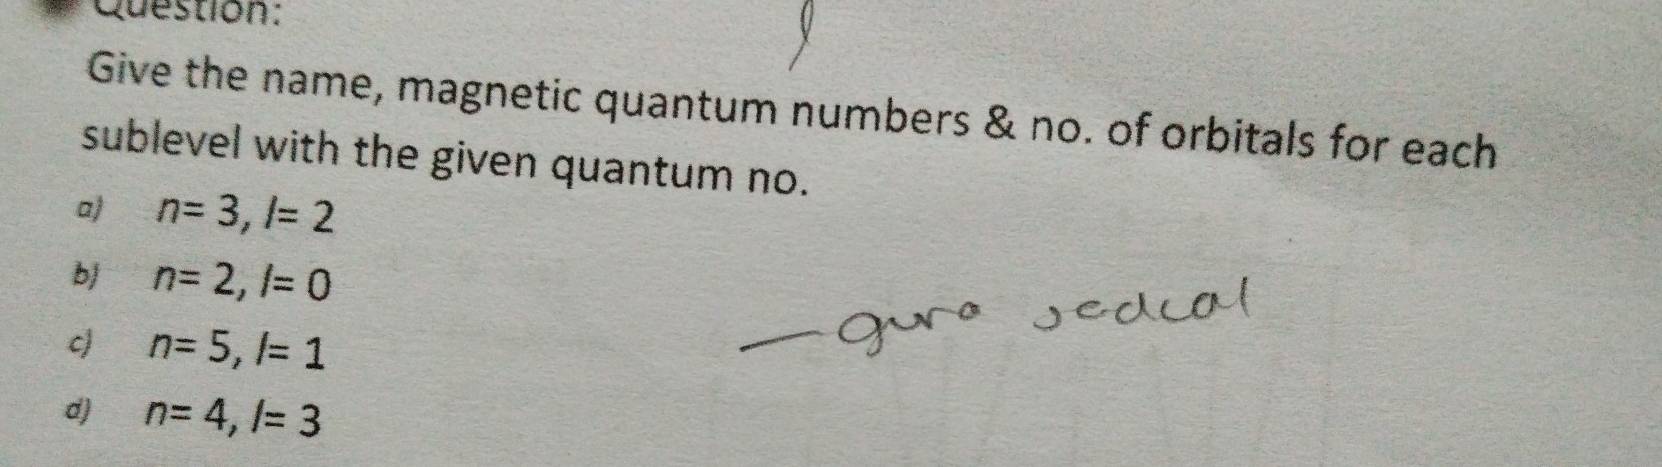 Question:
Give the name, magnetic quantum numbers & no. of orbitals for each
sublevel with the given quantum no.
a) n= 3, l= 2
b) n= 2, l= 0
c) n= 5, l= 1
d) n= 4, l= 3